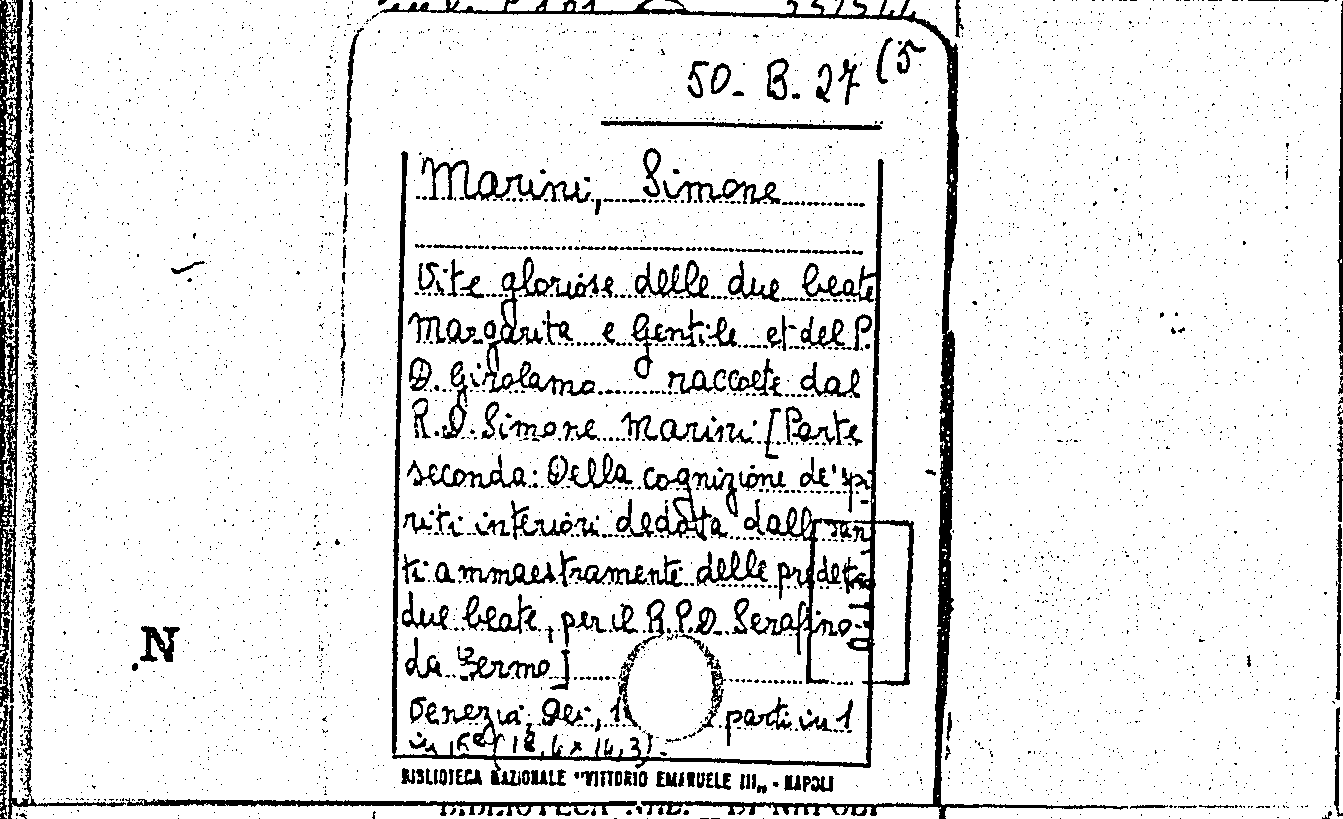 50. B. 27 (5
Marini, Simone
Vite gloriose delle due beate
Margarita e Gentile et del P.
D. Girolamo raccolte dal
R.D. Simone Marini [Parte
seconda: Della cognizione de' spi-
riti interiori dedotta dalli san-
ti ammaestramente delle predette
due beate, per il R.P.D. Serafino
da Fermo]
Venezia, parti in 1
BIBLIOTECA NAZIONALE "VITTORIO EMANUELE III„ - NAPOLI
N